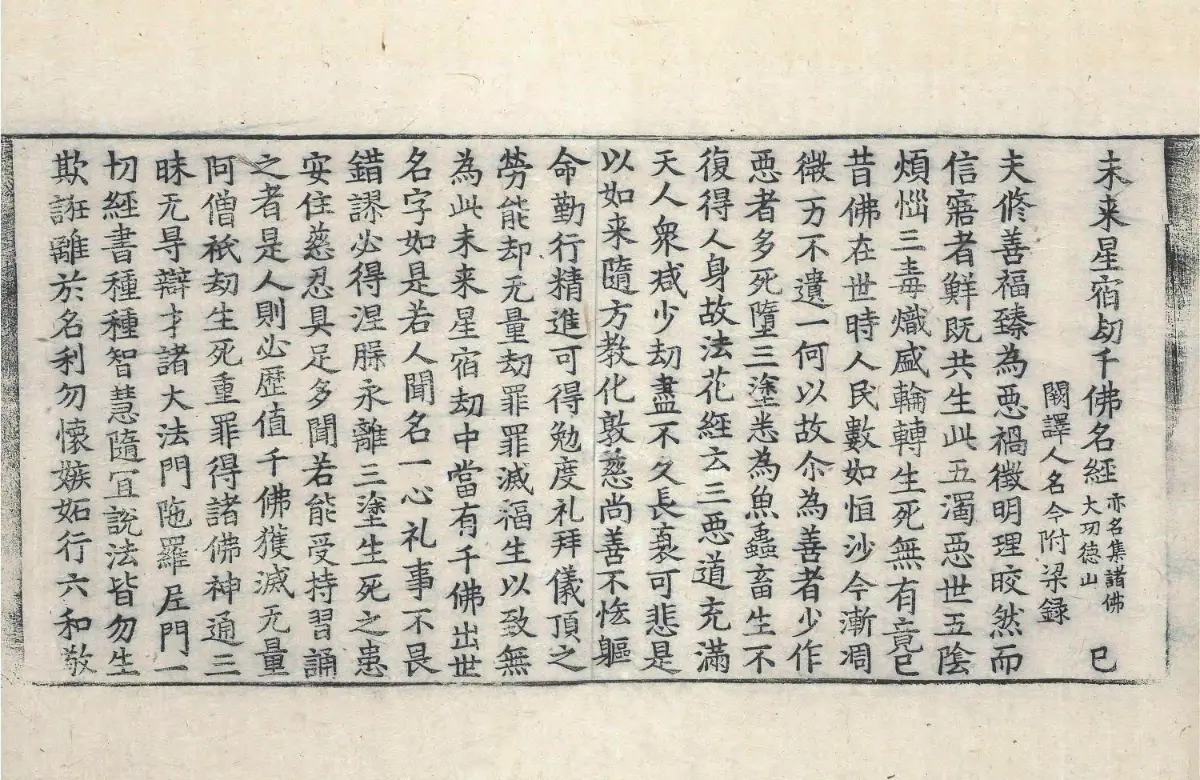 未来星宿劫千佛名經 亦名集諸佛大功德山 巳
闕譯人名今附梁錄
夫修善福臻為惡禍徵明理皎然而
信寤者鮮既共生此五濁惡世五陰
煩惱三毒熾盛輪轉生死無有竟已
昔佛在世時人民數如恒沙今漸凋
微万不遺一何以故尒為善者少作
惡者多死墮三塗悉為魚蟲畜生不
復得人身故法花經云三惡道充滿
天人衆减少劫盡不久長衰可悲是
以如来隨方教化敦慈尚善不恡軀
命勤行精進可得勉度礼拜儀頂之
勞能却无量劫罪罪滅福生以致無
為此未来星宿劫中當有千佛出世
名字如是若人聞名一心礼事不畏
錯謬必得涅槃永離三塗生死之患
安住慈忍具足多聞若能受持習誦
之者是人則必歷值千佛獲滅无量
阿僧祇劫生死重罪得諸佛神通三
昧无㝵辯才諸大法門陁羅尼門一
切經書種種智慧隨宜說法皆勿生
欺誑離於名利勿懷嫉妬行六和敬